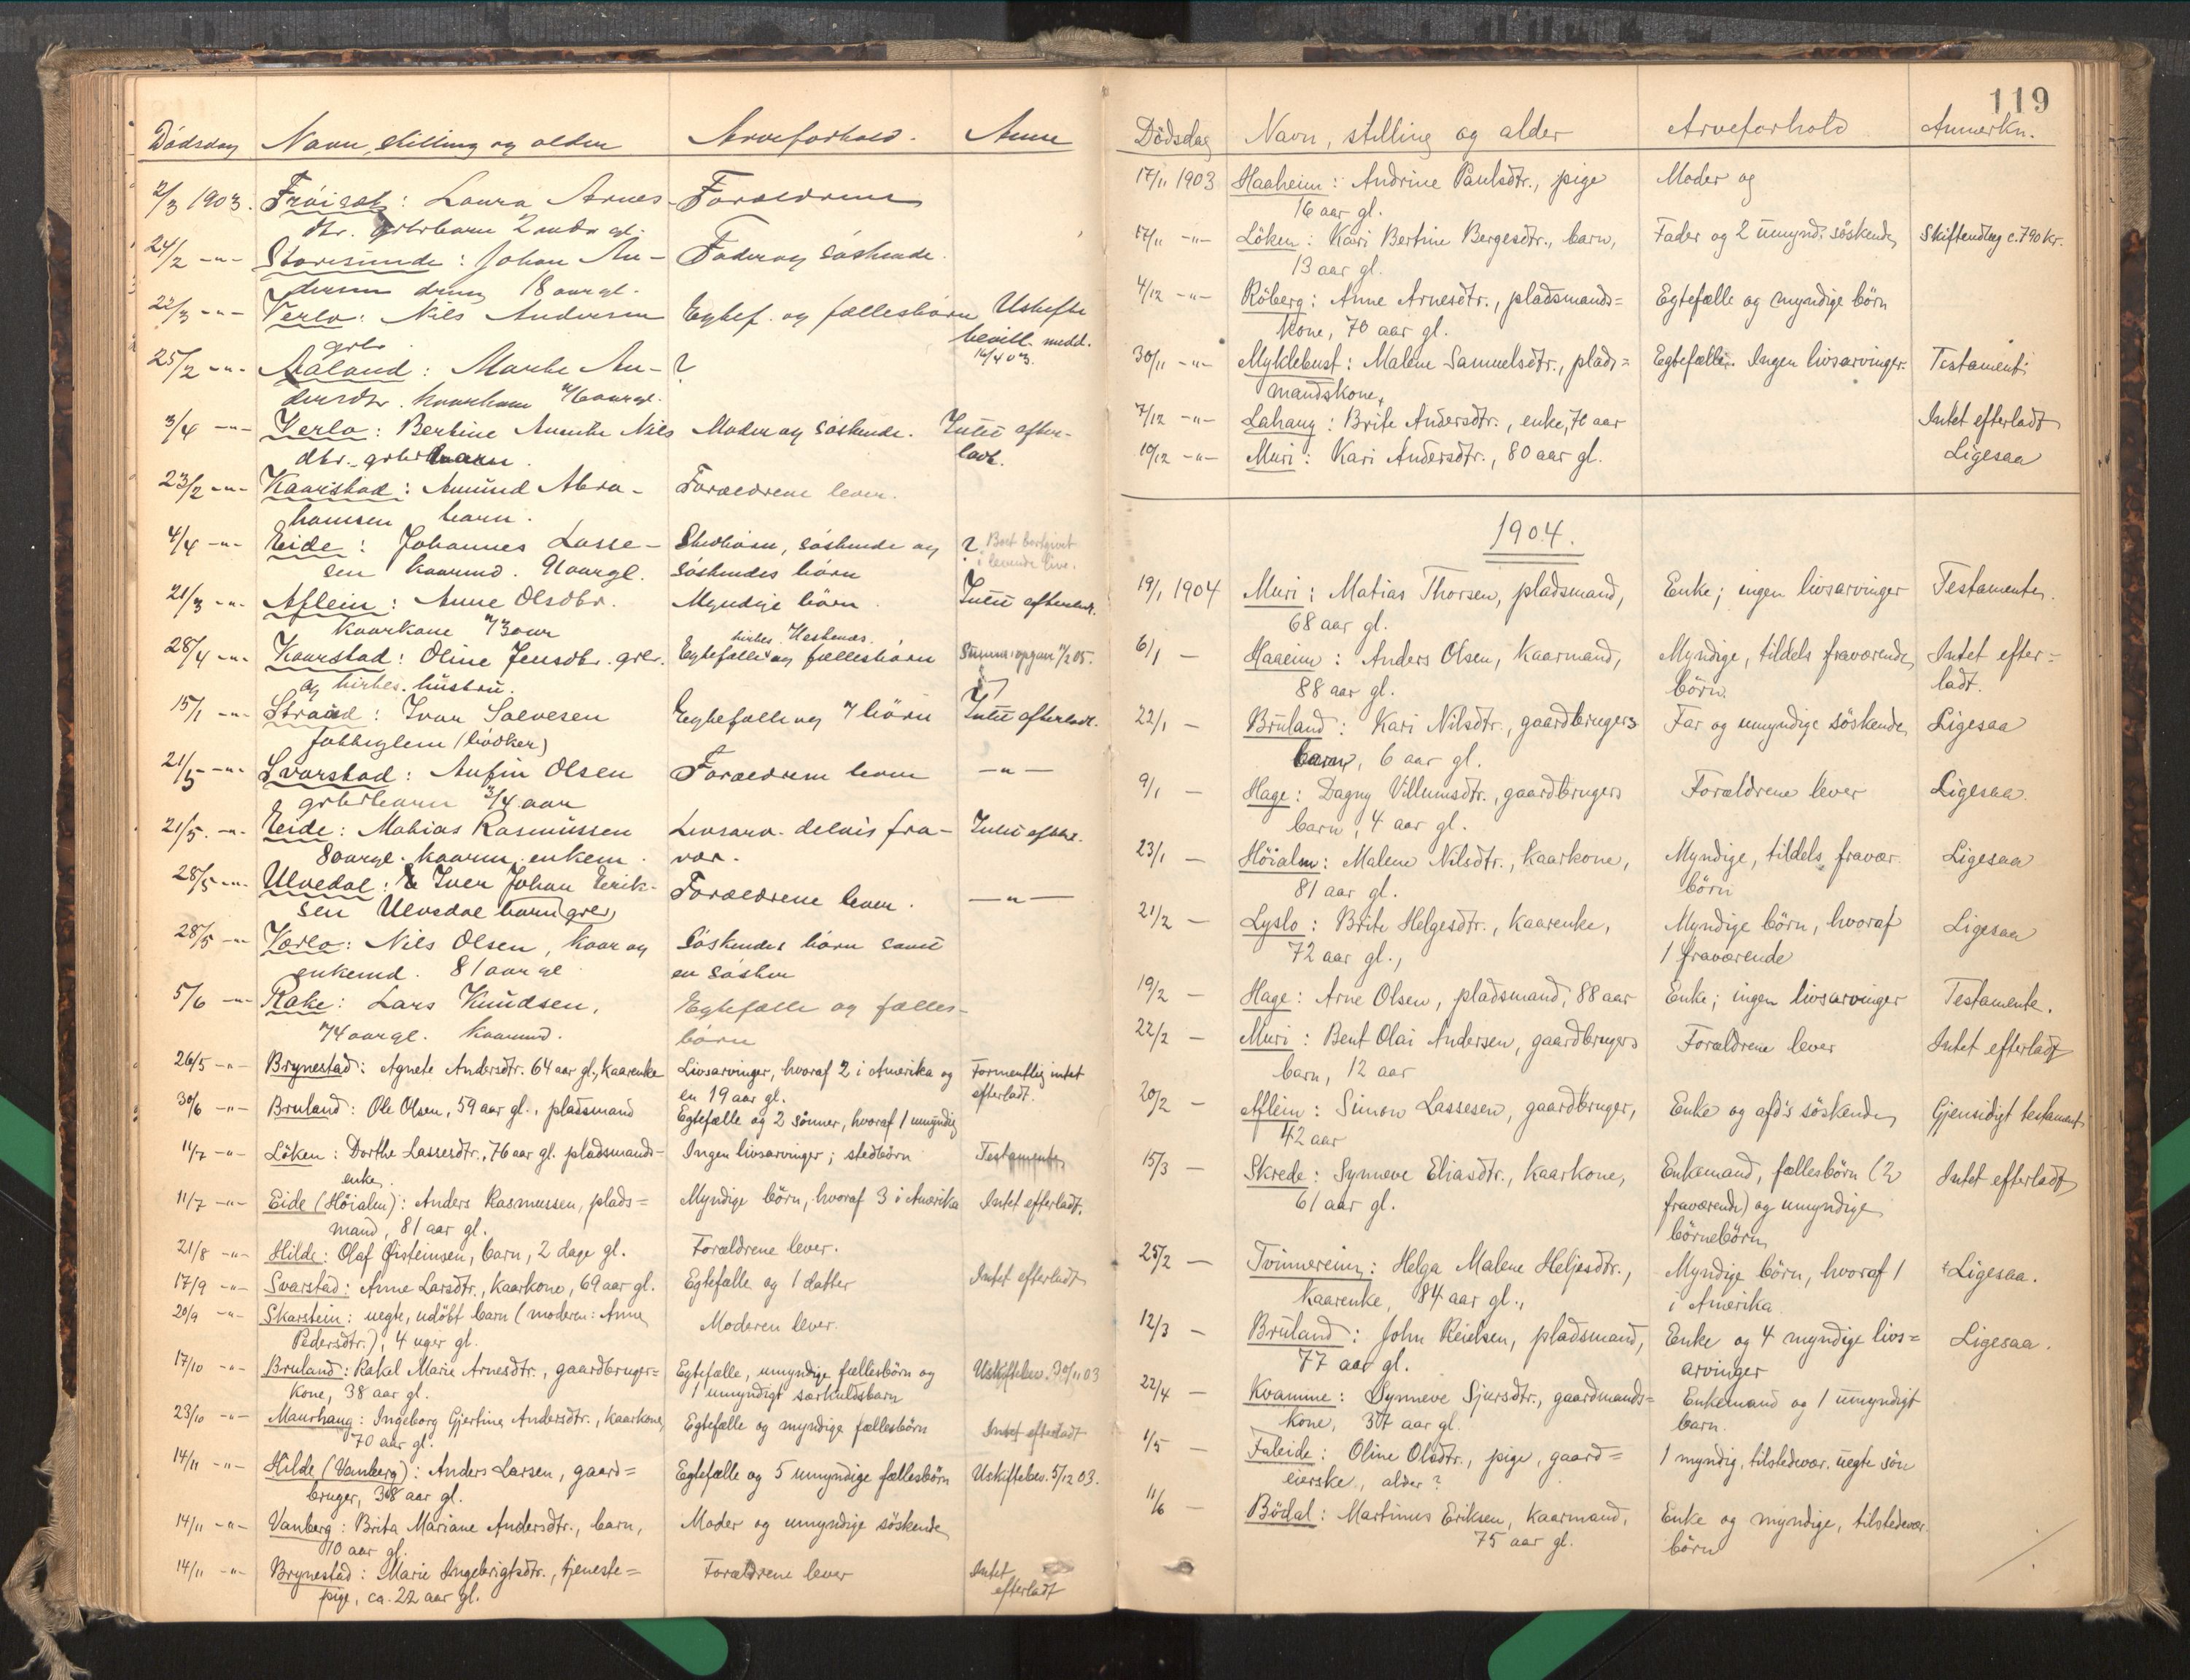 Dödsdag Navn, stilling og alder Arveforhold. Anm
2/3 1903. Fröiset: Laura Arnes- Forældrene
dtr. grbrbarn 2 mdr gl.
24/2 -"- Storesunde: Johan An- Fader og söskende.
dersen dreng 18 aar gl.
22/3 -"- Verlo: Nils Andersen Egtef. og fællesbörn Uskifte
grbr bevill. medd.
16/4 03.
25/2 -"- Aaland: Marthe An- ?
dersdtr. kaarkone 76 aar gl.
3/4 -"- Verlo: Bertine Nils Moder og söskende. Intet efter-
dtr. grbrbarn. ladt.
23/2 -"- Kaarstad: Amund Abra- Forældrene lever.
hamsen barn.
4/4 -"- Eide: Johannes Lasse- Stedbörn, söskende og ? Boet bortgivet
sen kaarmd. 91 aar gl. söskendes börn i levende live.
21/3 -"- Aflein: Anne Olsdtr. Myndige börn. Intet efterladt.
kaarkone 73 aar
28/4 -"- Kaarstad: Oline Jensdtr. grbr. Egtefælle og fællesbörn
og kirkes. hustru.
15/1 -"- Strand: Ivar Salvesen Egtefælle og 7 börn Intet efterladt.
fattiglem (bödker)
21/5 -"- Svarstad: Anfin Olsen Forældrene lever -"-
grbrbarn 3/4 aar
21/5. -"- Eide: Mathias Rasmussen Livsarv. delvis fra- Intet efterl.
80 aar gl. kaarm. enkem. vær.
28/5 -"- Ulvedal: Iver Johan Erik- Forældrene lever. -"-
sen Ulvedal barn (grbr)
28/5 -"- Verlo: Nils Olsen, kaar og Söskendes börn samt
enkemd. 81 aar gl en söster
5/6 -"- Rake: Lars Knudsen, Egtefælle og fælles-
74 aar gl. kaarmd. börn
26/5 -"- Brynestad: Agnete Andersdtr. 64 aar gl., kaarenke Livsarvinger, hvoraf 2 i Amerika og Formentlig intet
en 19 aar gl. efterladt.
30/6 -"- Bruland: Ole Olsen, 59 aar gl., pladsmand Egtefælle og 2 sönner, hvoraf 1 umyndig
11/7 -"- Löken: Dorthe Lassesdtr., 76 aar gl. pladsmands- Ingen livsarvinger; stedbörn Testamente
enke.
11/7 -"- Eide (Höialm): Anders Rasmussen, plads= Myndige börn, hvoraf 3 i Amerika Intet efterladt.
mand, 81 aar gl.
21/8 -"- Hilde: Olaf Östeinsen, barn, 2 dage gl. Forældrene lever.
17/9 -"- Svarstad: Anne Larsdtr., kaarkone, 69 aar gl. Egtefælle og 1 datter Intet efterladt
20/9 -"- Skarstein: uegte, udöbt barn (moderen: Anne Moderen lever.
Pedersdtr.), 4 uger gl.
17/10 -"- Bruland: Rakel Marie Arnesdtr., gaardbruger= Egtefælle, umyndige fællesbörn og Uskiftebev. 30/11 03
kone, 38 aar gl. 1 umyndigt særkuldsbarn
23/10 -"- Maurhaug: Ingeborg Gjertine Andersdtr., kaarkone, Egtefælle og myndige fællesbörn Intet efterladt
70 aar gl.
14/11 -"- Hilde (Vanberg): Anders Larsen, gaard= Egtefælle og 5 umyndige fællesbörn Uskiftebev. 5/12 03.
bruger, 38 aar gl.
14/11 -"- Vanberg: Brita Mariane Andersdtr., barn, Moder og umyndige söskende
10 aar gl.
14/11 -"- Brynestad: Marie Ingebrigtsdtr., tjeneste= Forældrene lever Intet
pige, ca. 22 aar gl. efterladt
119
Dödsdag Navn, stilling og alder Arveforhold Anmerkn.
17/11 1903 Haaheim: Andrine Paulsdtr., pige Moder og
16 aar gl.
17/11 -"- Löken: Kari Bertine Bergesdtr., barn, Fader og 2 umynd. söskende Skiftendlag c. 790 kr.
13 aar gl.
4/12 -"- Röberg: Anne Arnesdtr., pladsmands= Egtefælle og myndige börn
kone, 70 aar gl.
30/11 -"- Myklebust: Malene Samuelsdtr., plads= Egtefælle. Ingen livsarvinger. Testament.
mandskone,
7/12 -"- Lahaug: Brite Andersdtr., enke, 70 aar Intet efterladt
10/12 -"- Muri: Kari Andersdtr., 80 aar gl. Ligesaa
1904.
19/1 1904 Muri: Matias Thorsen, pladsmand, Enke; ingen livsarvinger Testamente.
68 aar gl.
6/1 — Haaeim: Anders Olsen, kaarmand, Myndige, tildels fraværende Intet efter=
88 aar gl. börn. ladt.
22/1 — Bruland: Kari Nilsdtr., gaardbrugers Far og umyndige söskende Ligesaa
barn, 6 aar gl.
9/1 — Hage: Dagny Villumsdtr., gaardbrugers Forældrene lever Ligesaa.
barn, 4 aar gl.
23/1 — Höialm: Malene Nilsdtr., kaarkone, Myndige, tildels fravær. Ligesaa
81 aar gl. börn
21/2 — Lyslo: Brite Helgesdtr., kaarenke, Myndige börn, hvoraf Ligesaa
72 aar gl., 1 fraværende
19/2 — Hage: Arne Olsen, pladsmand, 88 aar Enke; ingen livsarvinger Testamente.
22/2 — Muri: Bent Olai Andersen, gaardbrugers Forældrene lever Intet efterladt
barn, 12 aar
20/2 — Aflein: Simon Lassesen, gaardbruger, Enke og afd's söskende Gjensidigt testament
42 aar
15/3 — Skrede: Synneve Eliasdtr., kaarkone, Enkemand, fællesbörn (2 Intet efterladt
61 aar gl. fraværende) og umyndige
börnebörn
25/2 — Tvinnereim: Helga Malene Heljesdtr., Myndige börn, hvoraf 1 Ligesaa.
kaarenke, 84 aar gl., i Amerika.
12/3 — Bruland: John Reielsen, pladsmand, Enke og 4 myndige livs= Ligesaa.
77 aar gl. arvinger
22/4 — Kvamme: Synneve Sjursdtr., gaardmands= Enkemand og 1 umyndigt
kone, 37 aar gl. barn.
1/5 — Faleide: Oline Olsdtr., pige, gaard= 1 myndig, tilstedevær. uegte sön
eierske, alder?
11/6 — Bödal: Martinus Eriksen, kaarmand, Enke og myndige, tilstedevær.
75 aar gl. börn